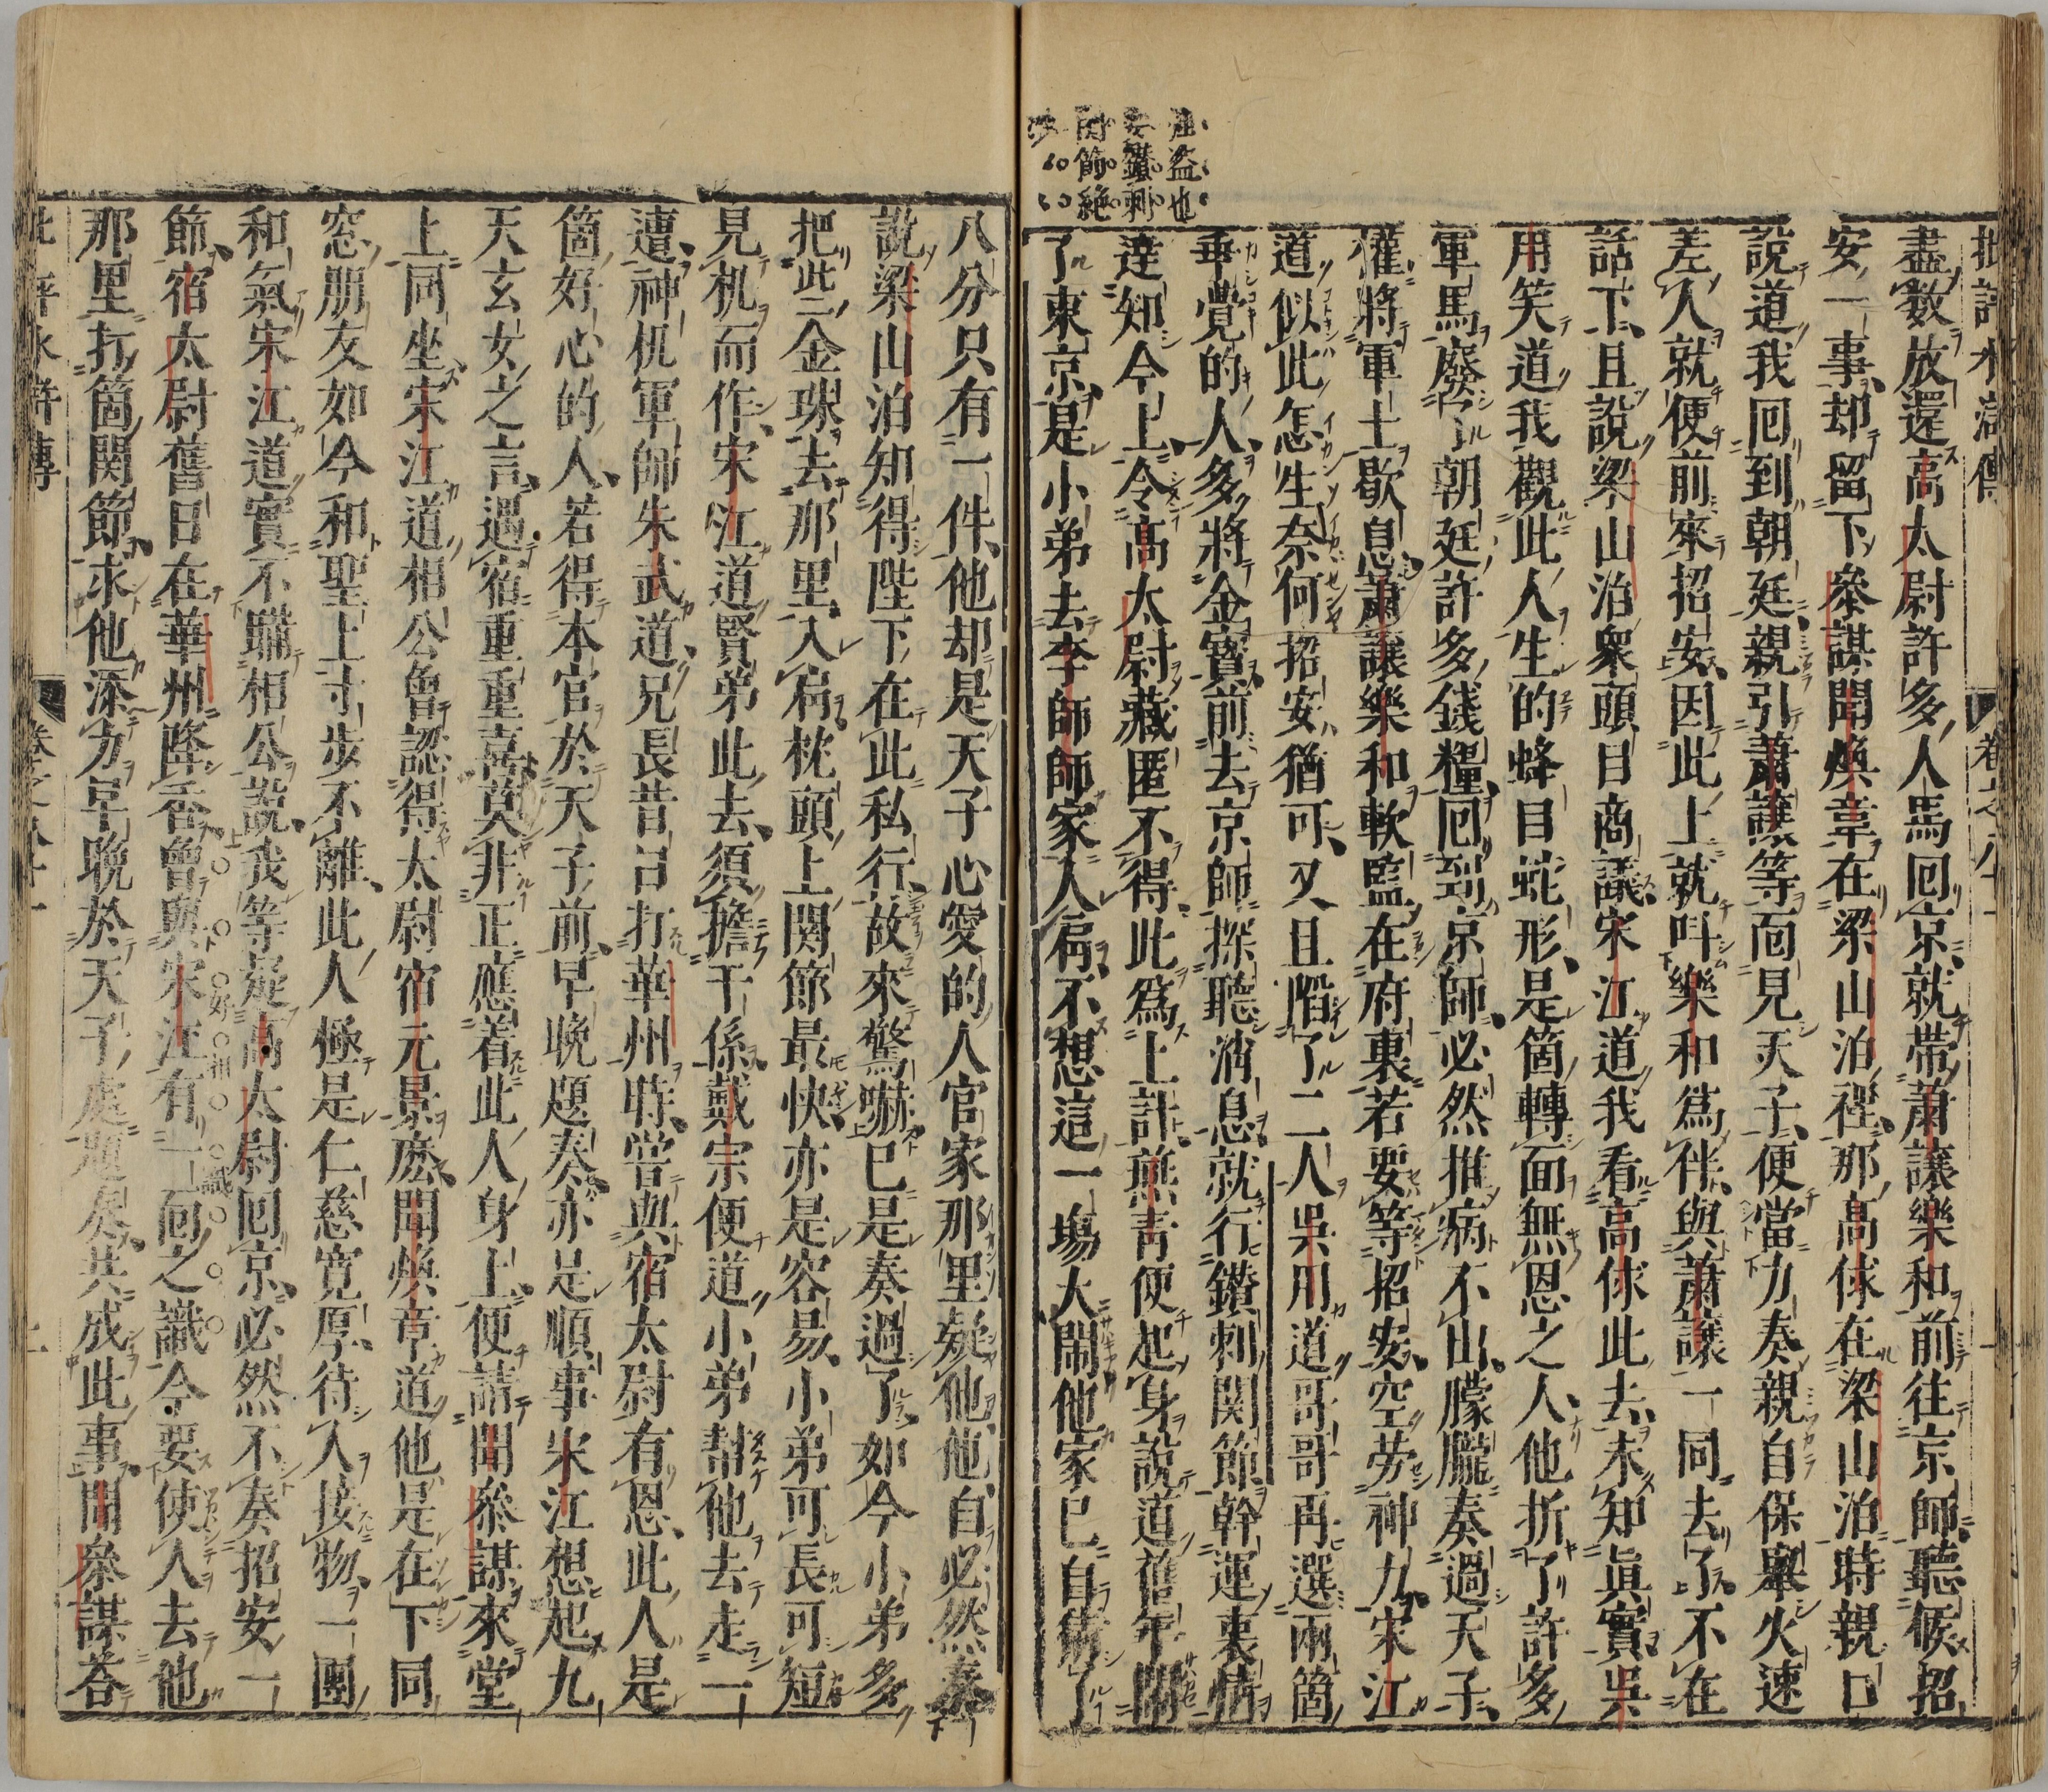 批評水滸傳　卷之八十一
盡數放還高太尉許多人馬囘京就帶蕭讓樂和前往京師聽候招
安一事却留下叅謀聞煥章在梁山泊裡那高俅在梁山泊時親口
說道我囘到朝廷親引蕭讓等面見天子便當力奏親自保舉火速
差人就便前來招安因此上就呌樂和爲伴與蕭讓一同去了不在
話下且說梁山泊衆頭目商議宋江道我看高俅此去未知眞實吳
用笑道我觀此人生的蜂目蛇形是箇轉面無恩之人他折了許多
軍馬廢了朝廷許多錢糧囘到京師必然推病不出朦朧奏過天子
權將軍士歇息蕭讓樂和軟監在府裏若要等招安空劳神力宋江
道似此怎生奈何招安猶可又且陷了二人吳用道哥哥再選兩箇
乖覺的人多將金寳前去京師探聽消息就行鑚刺関節斡運裏情
達知今上令高太尉藏匿不得此爲上計燕青便起身說道舊年閙
了東京是小弟去李師師家入肩不想這一塲大閙他家已自猜了
八分只有一件他却是天子心愛的人官家那里疑他他自必然奏
說梁山泊知得陛下在此私行故來驚嚇已是奏過了如今小弟多
把些金珠去那里入肩枕頭上関節最快亦是容易小弟可長可短
見机而作宋江道賢弟此去須擔干係戴宗便道小弟幇他去走一
遭神机軍師朱武道兄長昔日打華州時嘗與宿太尉有恩此人是
箇好心的人若得本官於天子前早晚題奏亦是順事宋江想起九
天玄女之言遇宿重重喜莫非正應着此人身上便請聞叅謀來堂
上同坐宋江道相公曾認得太尉宿元景麽聞煥章道他是在下同
窓朋友如今和聖上寸步不離此人極是仁慈寛厚待人接物一團
和氣宋江道實不瞞相公說我等疑高太尉囘京必然不奏招安一
節宿太尉舊日在華州降香曾與宋江有一面之識今要使人去他
那里打箇関節求他添力早晚於天子處題奏共成此事聞叅謀荅
批評水滸傳　卷之八十一